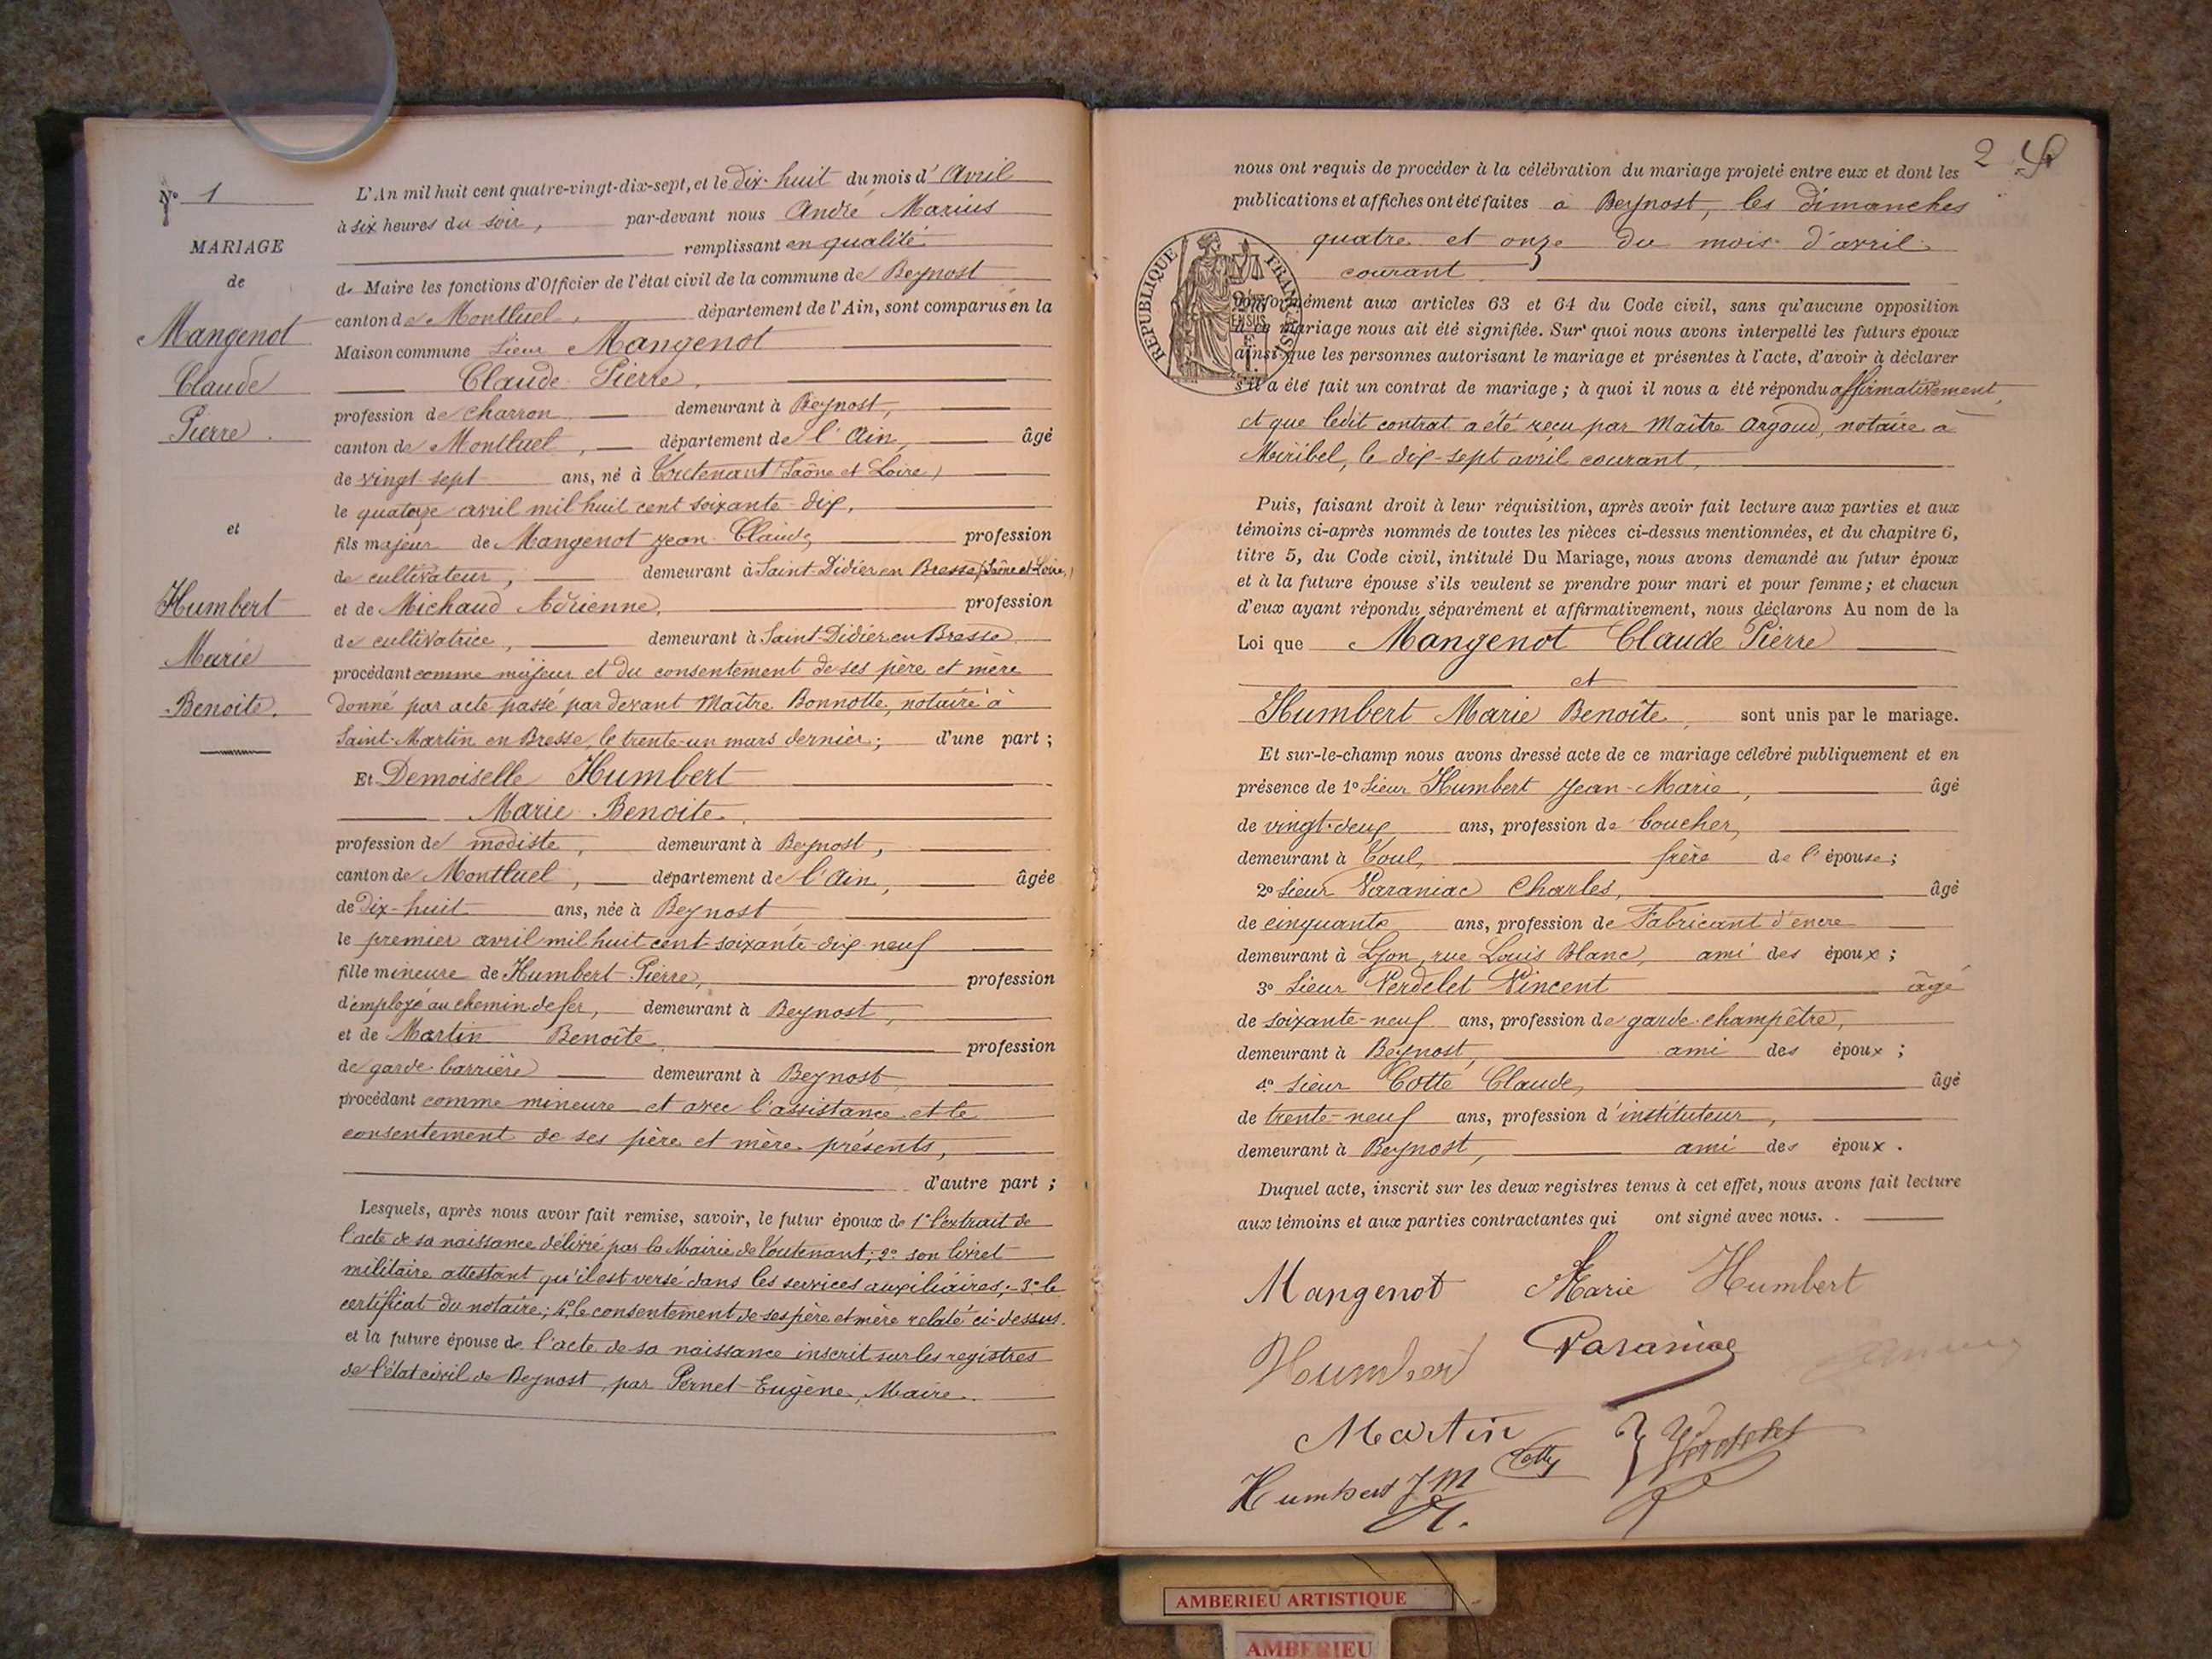 N° 1
MARIAGE
de
Mangenot
Claude
Pierre.
et
Humbert
Marie
Benoite.
L'An mil huit cent quatre-vingt-dix-sept, et le dix-huit du mois d'Avril
à six heures du soir, par-devant nous André Marius
remplissant en qualité
de Maire les fonctions d'Officier de l'état civil de la commune de Beynost
canton de Montluel, département de l'Ain, sont comparus en la
Maison commune Sieur Mangenot
Claude Pierre,
profession de charron demeurant à Beynost,
canton de Montluel, département de l'Ain, âgé
de vingt-sept ans, né à Toutenant (Saône et Loire)
le quatorze avril mil huit cent soixante-dix,
fils majeur de Mangenot Jean Claude, profession
de cultivateur, demeurant à Saint-Didier en Bresse (Saône et Loire,)
et de Michaud Adrienne, profession
de cultivatrice, demeurant à Saint-Didier en Bresse
procédant comme majeur et du consentement de ses père et mère
donné par acte passé par devant Maître Bonnotte, notaire à
Saint-Martin en Bresse, le trente-un mars dernier; d'une part;
Et Demoiselle Humbert
Marie Benoite.
profession de modiste, demeurant à Beynost,
canton de Montluel, département de l'Ain, âgée
de dix-huit ans, née à Beynost,
le premier avril mil huit cent soixante-dix-neuf
fille mineure de Humbert Pierre, profession
d'employé au chemin de fer, demeurant à Beynost,
et de Martin Benoîte profession
de garde-barrière demeurant à Beynost,
procédant comme mineure et avec l'assistance et le
consentement de ses père et mère présents,
d'autre part;
Lesquels, après nous avoir fait remise, savoir, le futur époux de 1° l'extrait de
l'acte de sa naissance délivré par la Mairie de Toutenant; 2° son livret
militaire attestant qu'il est versé dans les services auxiliaires; 3° le
certificat du notaire; 4° le consentement de ses père et mère relaté ci-dessus.
et la future épouse de l'acte de sa naissance inscrit sur les registres
de l'état civil de Beynost, par Pernet Eugène, Maire.
2
nous ont requis de procéder à la célébration du mariage projeté entre eux et dont les
publications et affiches ont été faites à Beynost, les dimanches
quatre et onze du mois d'avril
courant
RÉPUBLIQUE FRANÇAISE
conformément aux articles 63 et 64 du Code civil, sans qu'aucune opposition
à ce mariage nous ait été signifiée. Sur quoi nous avons interpellé les futurs époux
ainsi que les personnes autorisant le mariage et présentes à l'acte, d'avoir à déclarer
s'il a été fait un contrat de mariage; à quoi il nous a été répondu affirmativement,
et que ledit contrat a été reçu par Maître Argoud, notaire à
Miribel, le dix-sept avril courant,
Puis, faisant droit à leur réquisition, après avoir fait lecture aux parties et aux
témoins ci-après nommés de toutes les pièces ci-dessus mentionnées, et du chapitre 6,
titre 5, du Code civil, intitulé Du Mariage, nous avons demandé au futur époux
et à la future épouse s'ils veulent se prendre pour mari et pour femme; et chacun
d'eux ayant répondu séparément et affirmativement, nous déclarons Au nom de la
Loi que Mangenot Claude Pierre
et
Humbert Marie Benoîte, sont unis par le mariage.
Et sur-le-champ nous avons dressé acte de ce mariage célébré publiquement et en
présence de 1° Sieur Humbert Jean-Marie, âgé
de vingt-deux ans, profession de boucher,
demeurant à Toul, frère de l'épouse;
2° Sieur Varaniac Charles, âgé
de cinquante ans, profession de Fabricant d'encre
demeurant à Lyon, rue Louis Blanc, ami des époux;
3° Sieur Verdelet Vincent âgé
de soixante-neuf ans, profession de garde-champêtre,
demeurant à Beynost, ami des époux;
4° Sieur Cotte Claude, âgé
de trente-neuf ans, profession d'instituteur,
demeurant à Beynost, ami des époux.
Duquel acte, inscrit sur les deux registres tenus à cet effet, nous avons fait lecture
aux témoins et aux parties contractantes qui ont signé avec nous.
Mangenot Marie Humbert
Humbert Varaniac
Martin Cotte Verdelet
Humbert J M
AMBERIEU ARTISTIQUE
AMBERIEU